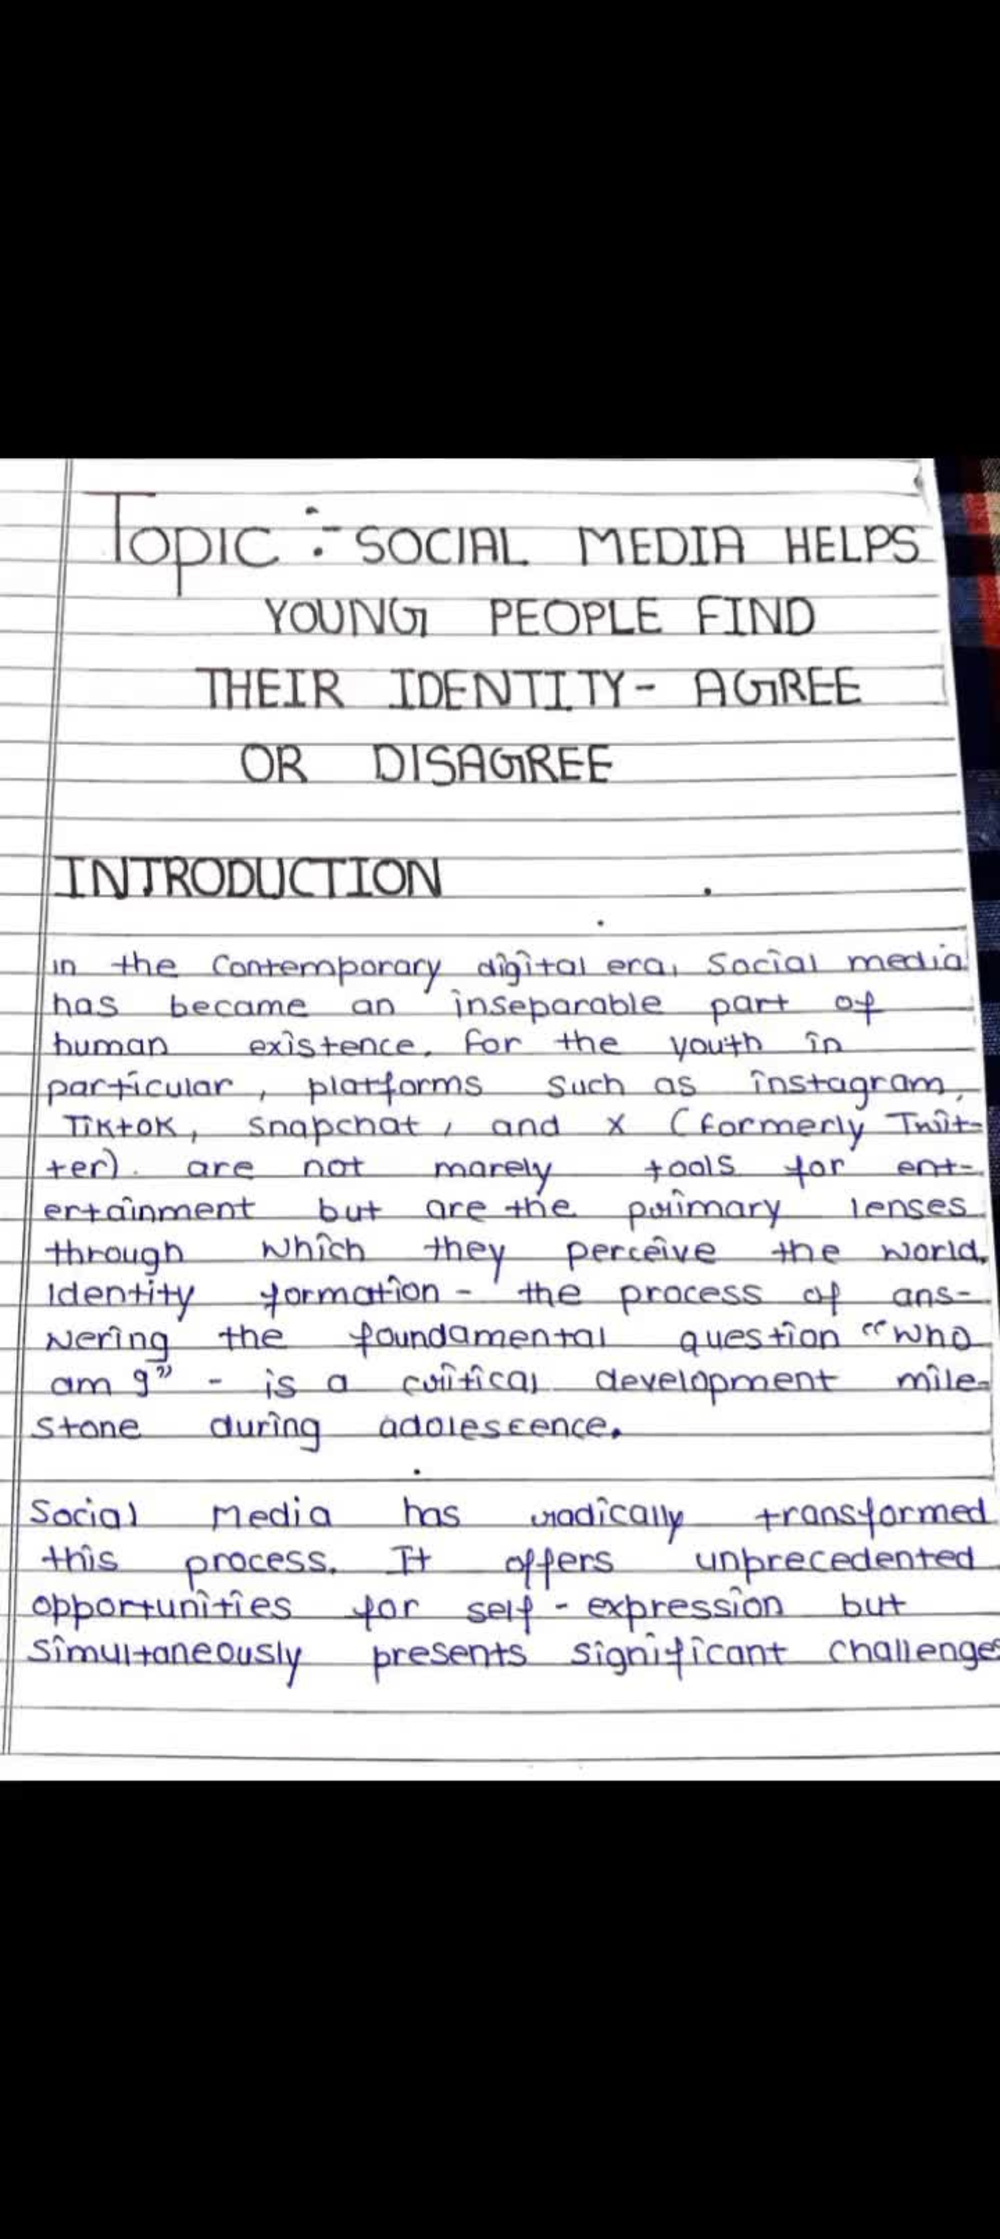 Topic :- SOCIAL MEDIA HELPS
YOUNG PEOPLE FIND
THEIR IDENTITY - AGREE
OR DISAGREE
INTRODUCTION
in the contemporary digital era, Social media
has became an inseparable part of
human existence. For the youth in
particular, platforms such as instagram,
TikTok, snapchat, and X (formerly Twit-
ter). are not marely tools for ent-
ertainment but are the primary lenses
through which they perceive the world.
Identity formation - the process of ans-
wering the foundamental question "who
am I" - is a critical development mile-
stone during adolescence.
Social Media has radically transformed
this process. It offers unprecedented
opportunities for self - expression but
simultaneously presents significant challenges